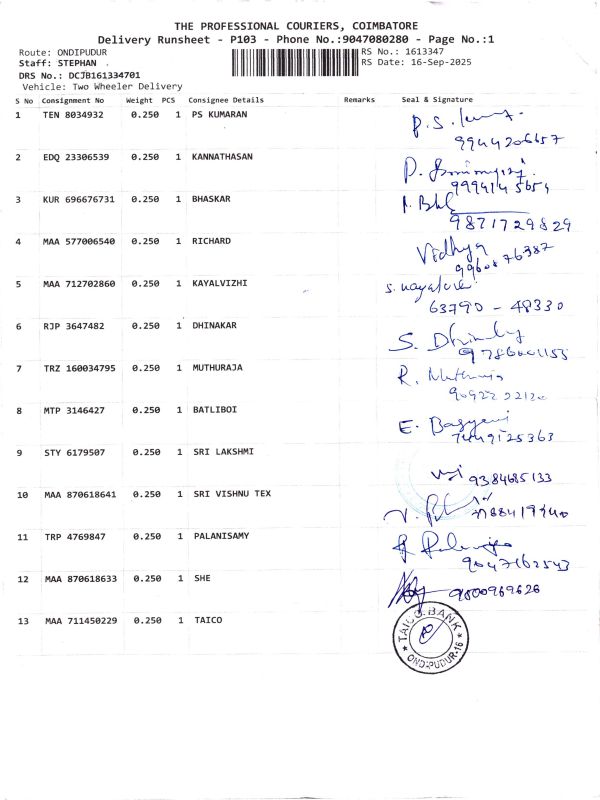 THE PROFESSIONAL COURIERS, COIMBATORE
Delivery Runsheet - P103 - Phone No.:9047080280 - Page No.:1
Route: ONDIPUDUR RS No.: 1613347
Staff: STEPHAN RS Date: 16-Sep-2025
DRS No.: DCJB161334701
Vehicle: Two Wheeler Delivery
S No Consignment No Weight PCS Consignee Details Remarks Seal & Signature
1 TEN 8034932 0.250 1 PS KUMARAN P.S.
9944206657
2 EDQ 23306539 0.250 1 KANNATHASAN
3 KUR 696676731 0.250 1 BHASKAR
9871729829
4 MAA 577006540 0.250 1 RICHARD Vidhya
5 MAA 712702860 0.250 1 KAYALVIZHI
63790 - 48330
6 RJP 3647482 0.250 1 DHINAKAR S.
7 TRZ 160034795 0.250 1 MUTHURAJA R.
8 MTP 3146427 0.250 1 BATLIBOI E.
9 STY 6179507 0.250 1 SRI LAKSHMI
9384685133
10 MAA 870618641 0.250 1 SRI VISHNU TEX
11 TRP 4769847 0.250 1 PALANISAMY
9047162543
12 MAA 870618633 0.250 1 SHE
9800969626
13 MAA 711450229 0.250 1 TAICO
TAICO BANK
ONDIPUDUR-16